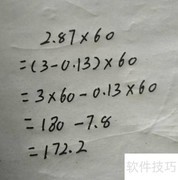 2.87×60
=(3-0.13)×60
=3×60-0.13×60
=180-7.8
=172.2
软件技巧